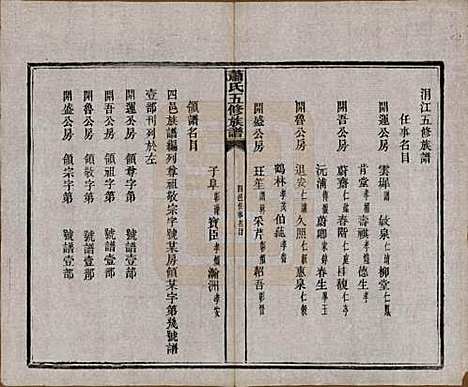 涓江五修族譜
任事名目
開運公房 雲墀 敏泉 柳堂仁
肯堂 壽祺 德生孝
開吾公房 蔚齋仁 春階仁 桂馥仁
沅浦傳 蔚卿 春生孝
開魯公房 退安仁 久照仁 惠泉仁
鶴林孝 伯蒓孝
開盛公房 玨生 采芹 韜吾彰
子阜彰 寶臣孝 瀚洲孝安
蕭氏五修族譜
領譜名目
四邑族譜編列尊祖敬宗字號某房領某字第幾號譜
壹部刊列於左
開運公房 領尊字第 號譜壹部
開吾公房 領祖字第 號譜壹部
開魯公房 領敬字第 號譜壹部
開盛公房 領宗字第 號譜壹部